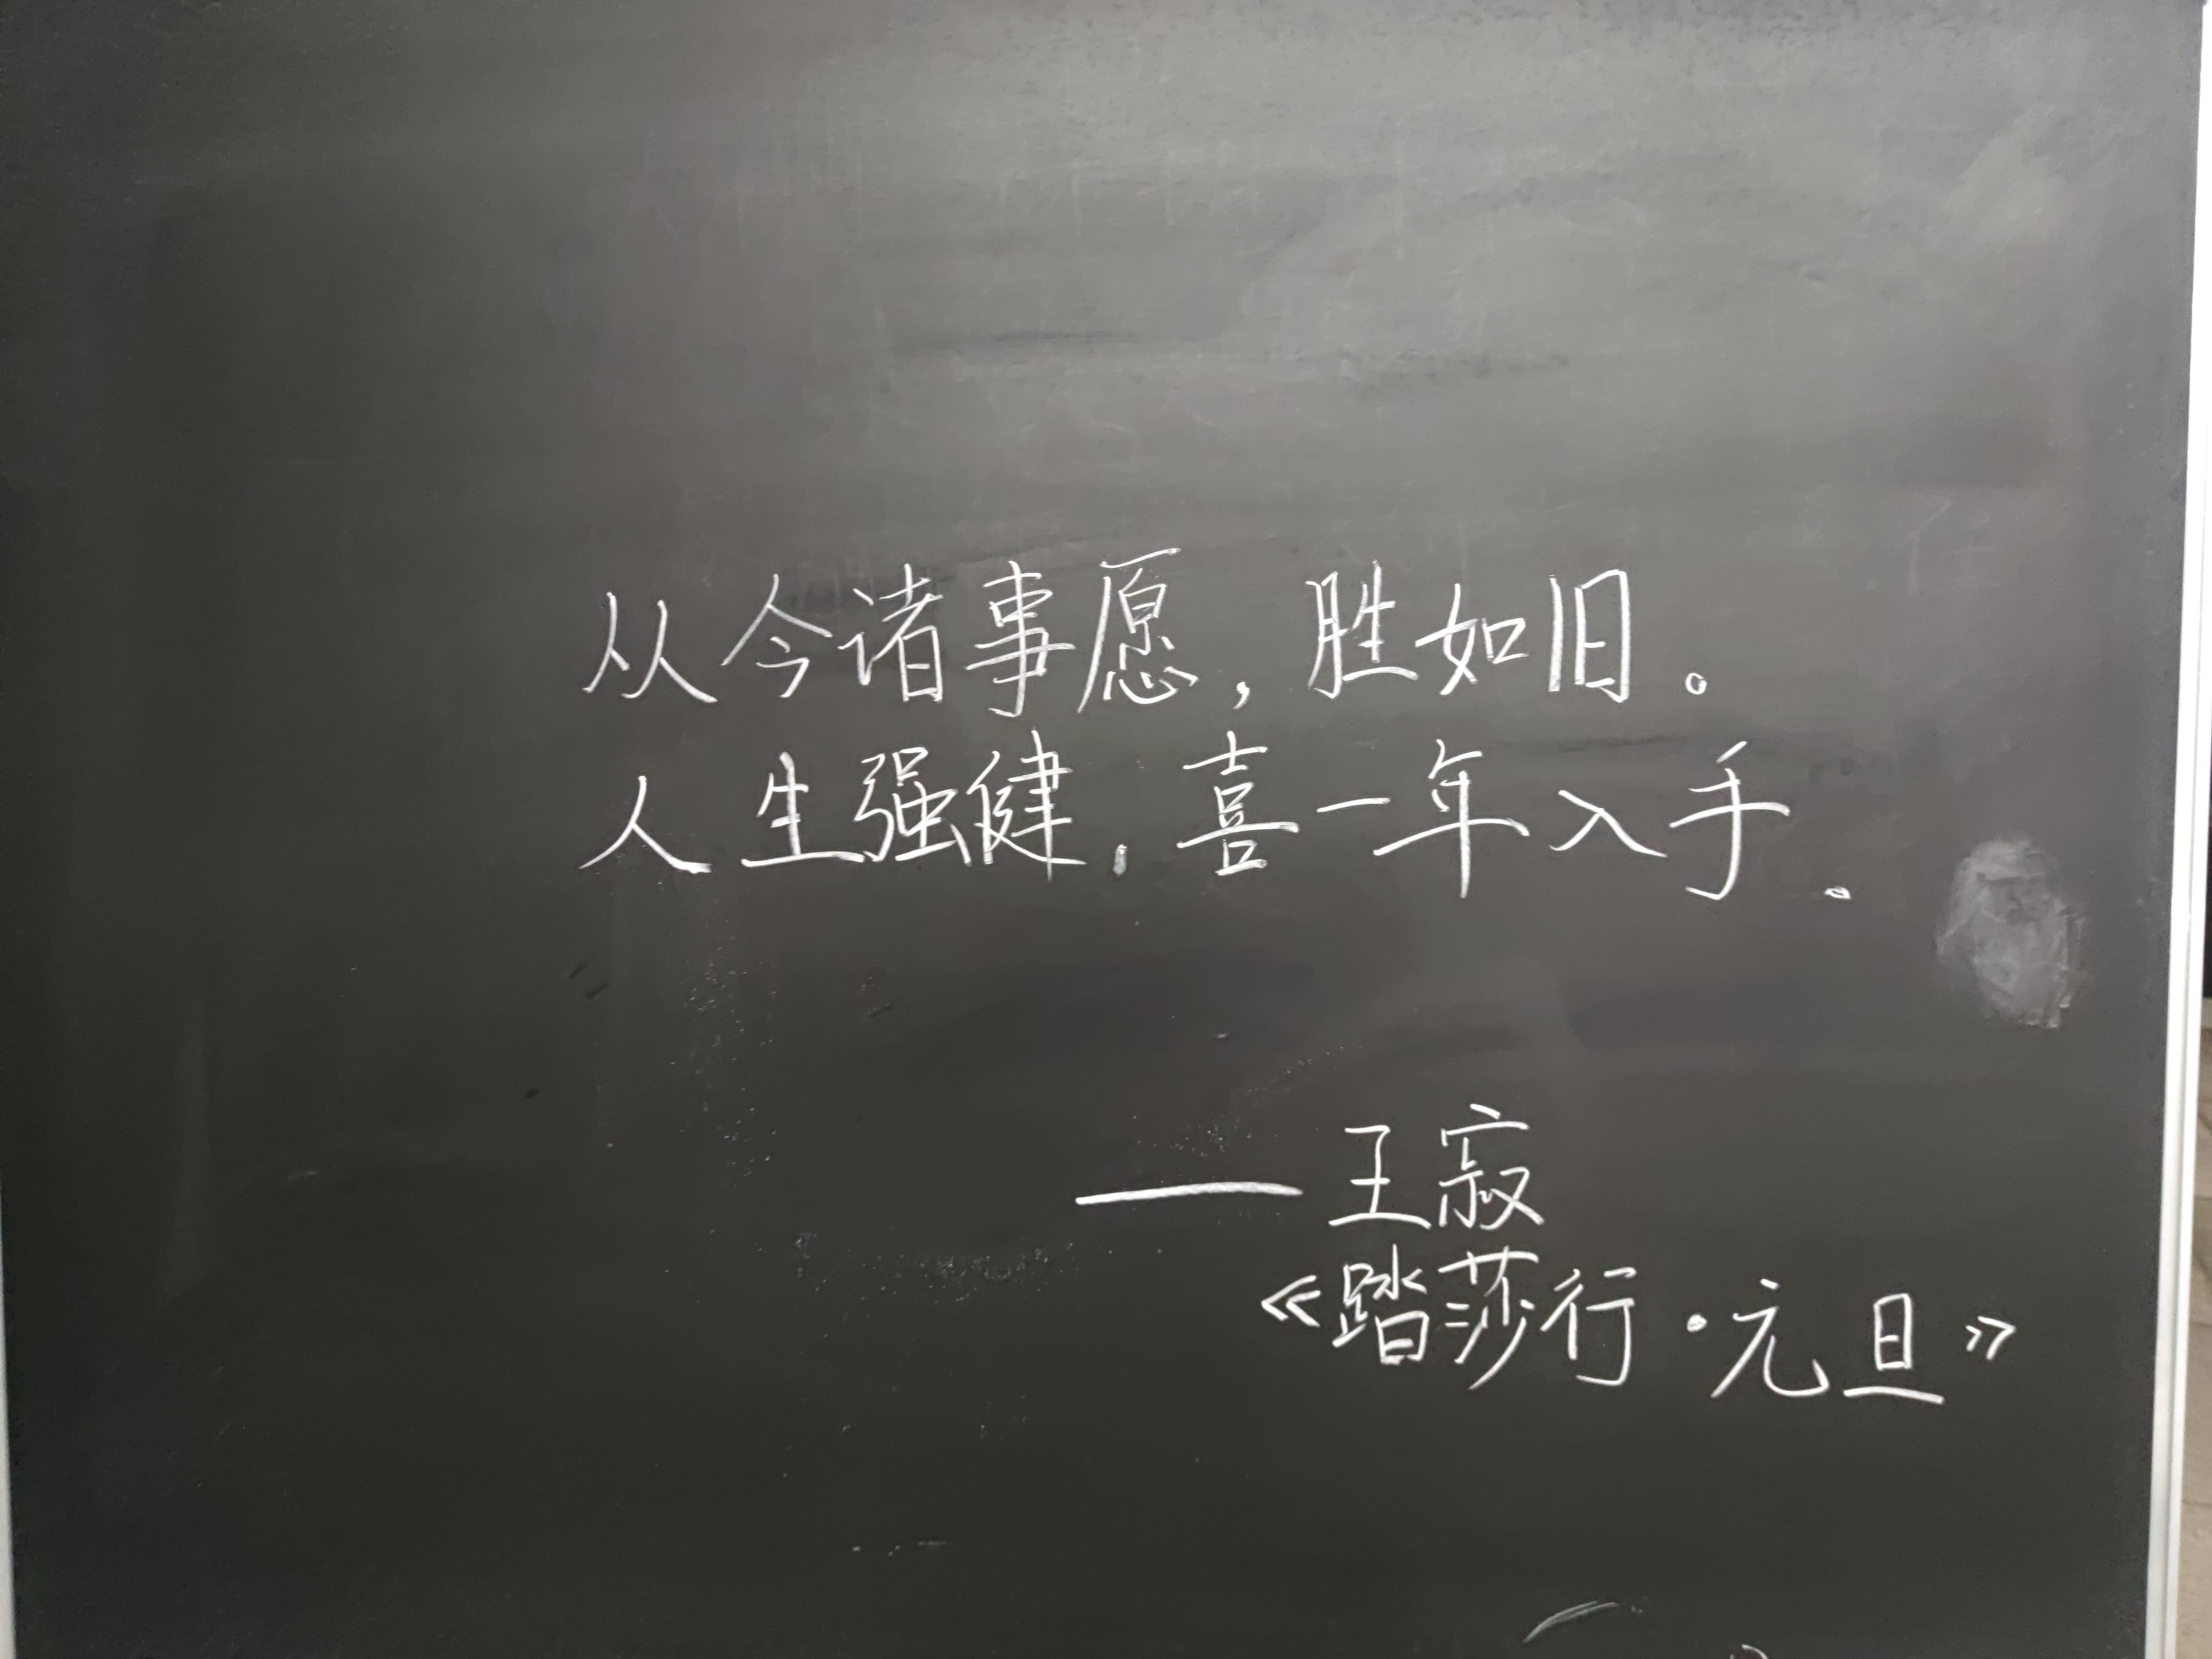 从今诸事愿，胜如旧。
人生强健，喜一年入手。
——王寂
《踏莎行·元旦》